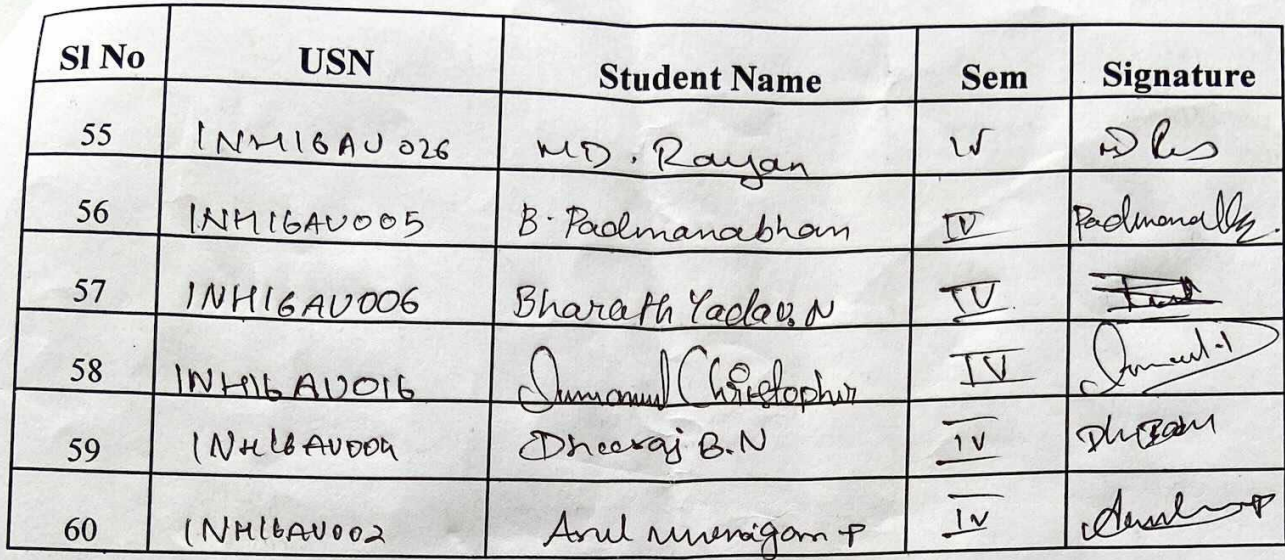 Sl No USN Student Name Sem Signature
55 1NH16AU026 MD. Rayan IV
56 1NH16AU005 B. Padmanabhan IV
57 1NH16AU006 Bharath Yadav. N IV
58 1NH16AU016 Immanuel Christopher IV
59 1NH16AU009 Dheeraj B.N IV
60 1NH16AU002 Arul murugan P IV